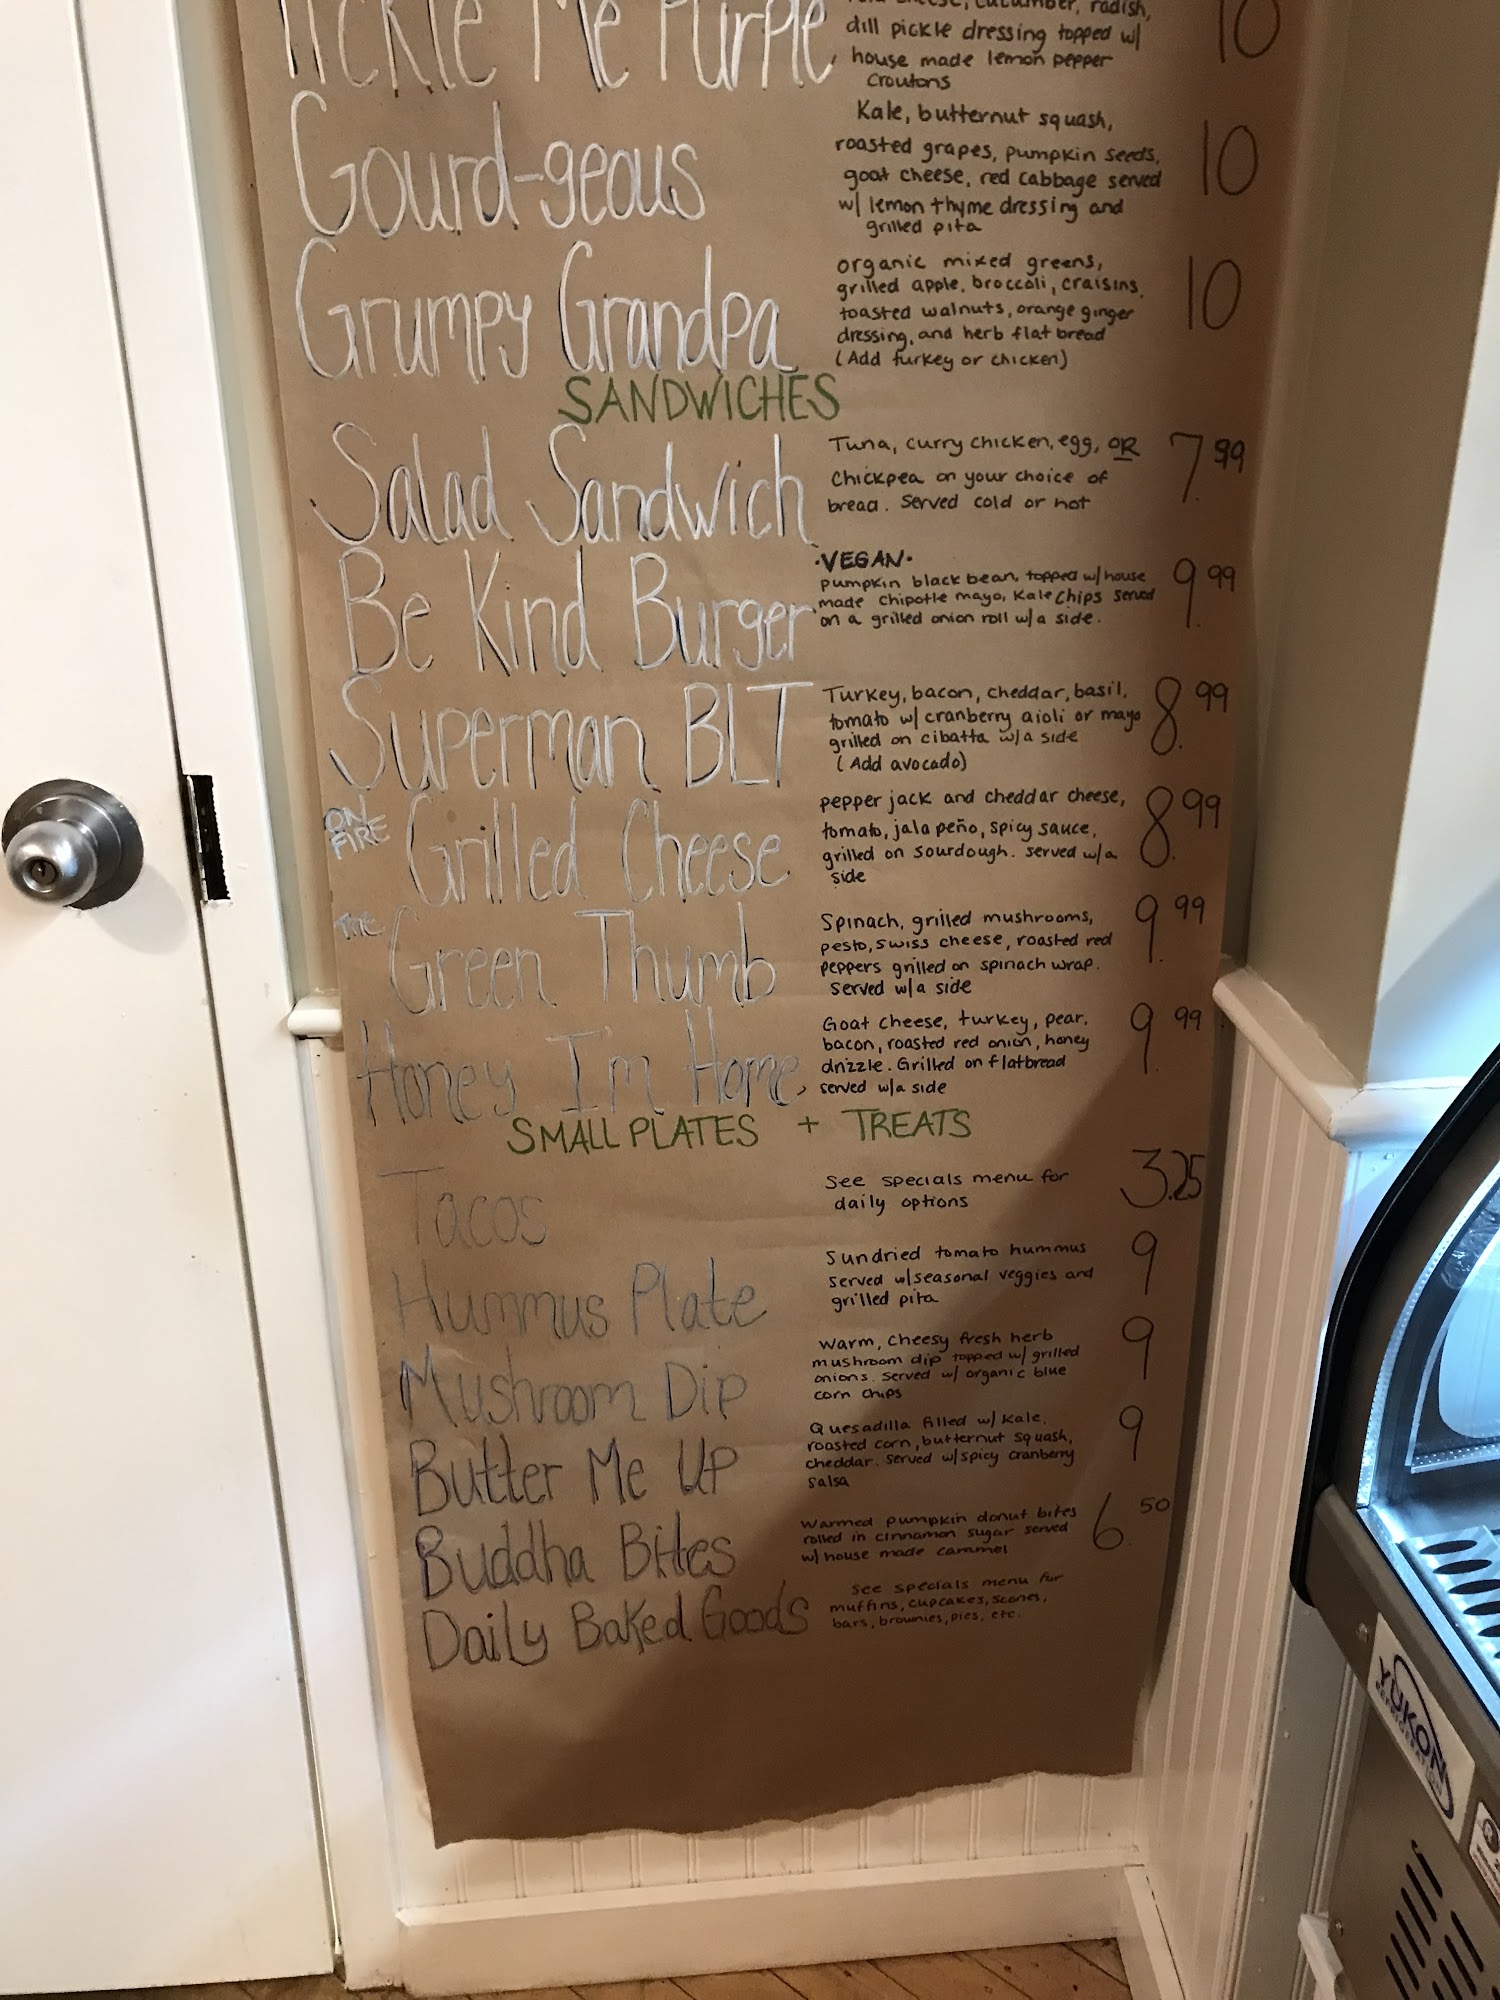 Tickle Me Purple
cheese, cucumber, radish,
dill pickle dressing topped w/
house made lemon pepper
croutons
10
Gourd-geous
Kale, butternut squash,
roasted grapes, pumpkin seeds,
goat cheese, red cabbage served
w/ lemon thyme dressing and
grilled pita
10
Grumpy Grandpa
organic mixed greens,
grilled apple, broccoli, craisins,
toasted walnuts, orange ginger
dressing, and herb flat bread
(Add turkey or chicken)
10
SANDWICHES
Salad Sandwich
Tuna, curry chicken, egg, OR
Chickpea on your choice of
bread. Served cold or hot
7.99
Be Kind Burger
·VEGAN·
pumpkin black bean, topped w/ house
made chipotle mayo, Kale Chips served
on a grilled onion roll w/ a side.
9.99
Superman BLT
Turkey, bacon, cheddar, basil,
tomato w/ cranberry aioli or mayo
grilled on cibatta w/a side
(Add avocado)
8.99
ON FIRE Grilled Cheese
pepper jack and cheddar cheese,
tomato, jalapeño, spicy sauce,
grilled on sourdough. served w/a
side
8.99
The Green Thumb
Spinach, grilled mushrooms,
pesto, swiss cheese, roasted red
peppers grilled on spinach wrap.
Served w/a side
9.99
Honey I'm Home
Goat cheese, turkey, pear,
bacon, roasted red onion, honey
drizzle. Grilled on flatbread
served w/a side
9.99
SMALL PLATES + TREATS
Tacos
See specials menu for
daily options
3.25
Hummus Plate
Sundried tomato hummus
served w/seasonal veggies and
grilled pita
9
Mushroom Dip
warm, cheesy fresh herb
mushroom dip topped w/ grilled
onions. Served w/ organic blue
corn chips
9
Butter Me Up
Quesadilla filled w/ Kale,
roasted corn, butternut squash,
cheddar. Served w/ spicy cranberry
salsa
9
Buddha Bites
Warmed pumpkin donut bites
rolled in cinnamon sugar served
w/ house made caramel
6.50
Daily Baked Goods
See specials menu for
muffins, cupcakes, scones,
bars, brownies, pies, etc.
YUKON
REFRIGERATION